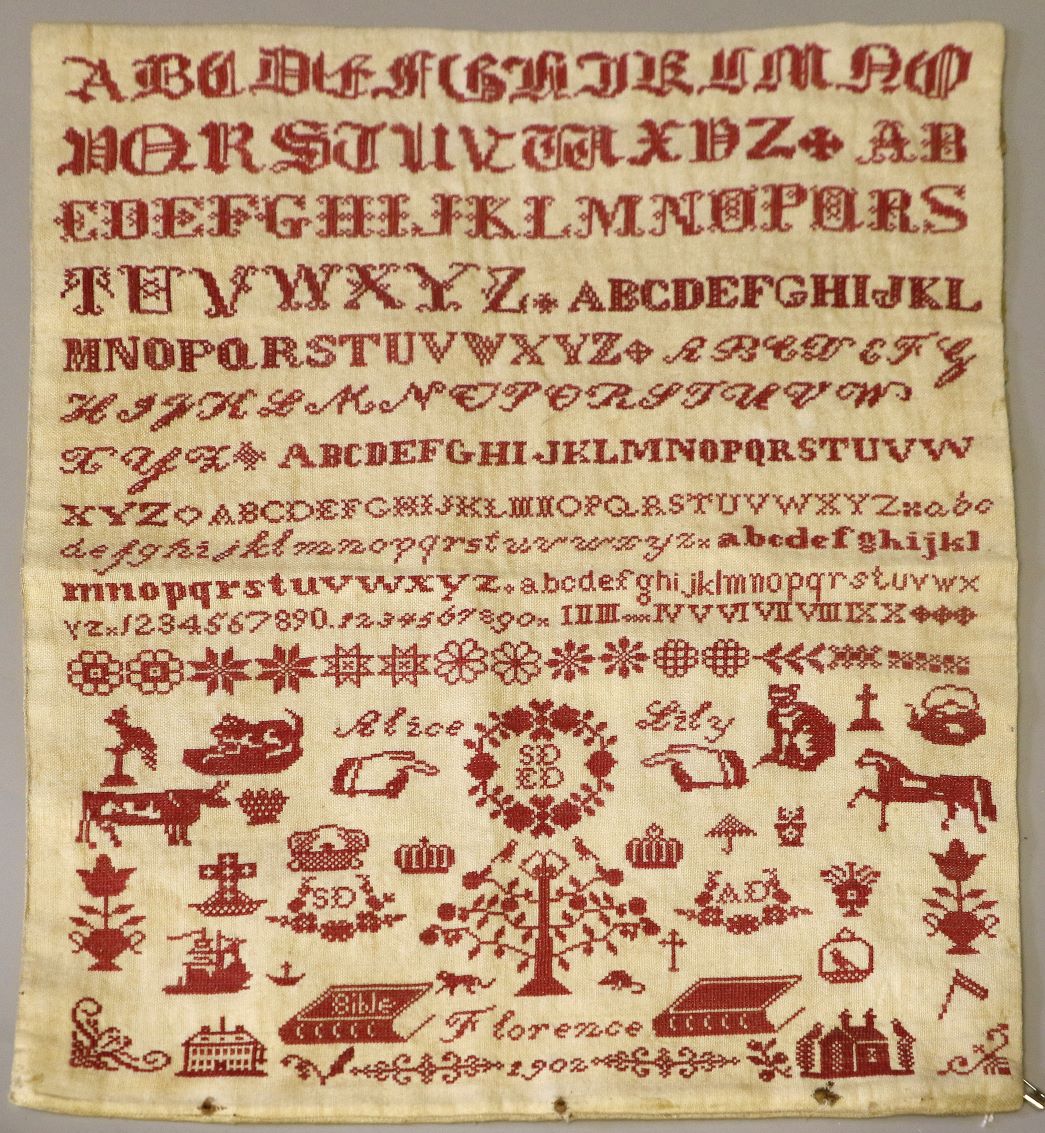 A B C D E F G H I K L M N O
P Q R S T U V W X Y Z A B
C D E F G H I J K L M N O P Q R S
T U V W X Y Z A B C D E F G H I J K L
M N O P Q R S T U V W X Y Z A B C D E F G
H I J K L M N O P Q R S T U V W
X Y Z A B C D E F G H I J K L M N O P Q R S T U V W
X Y Z A B C D E F G H I J K L M N O P Q R S T U V W X Y Z a b c
d e f g h i j k l m n o p q r s t u v w x y z a b c d e f g h i j k l
m n o p q r s t u v w x y z a b c d e f g h i j k l m n o p q r s t u v w x
y z 1 2 3 4 5 6 7 8 9 0 . 1 2 3 4 5 6 7 8 9 0 I II III IV V VI VII VIII IX X
Alice Lily
SD
ED
SD AD
Bible
Florence
1902